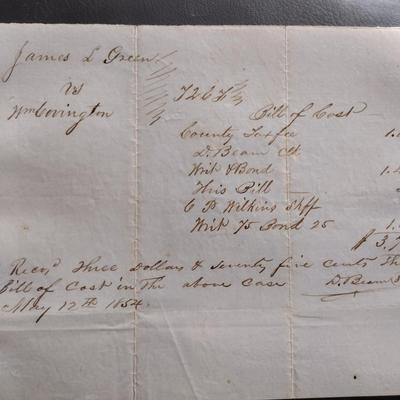 James L Green
vs
Wm Covington
Bill of Cost
County Tax fee 1.
D. Beam Clk
Writ & Bond 1.
This Bill
C P Wilkins Shff
Writ 75 Bond 25 1.
$ 3.7
Recvd Three Dollars & Seventy five cents Th
Bill of Cost in the above case D. Beam
May 12th 1854.